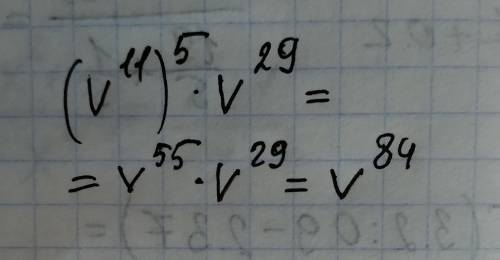 (v¹¹)⁵ · v²⁹ =
= v⁵⁵ · v²⁹ = v⁸⁴